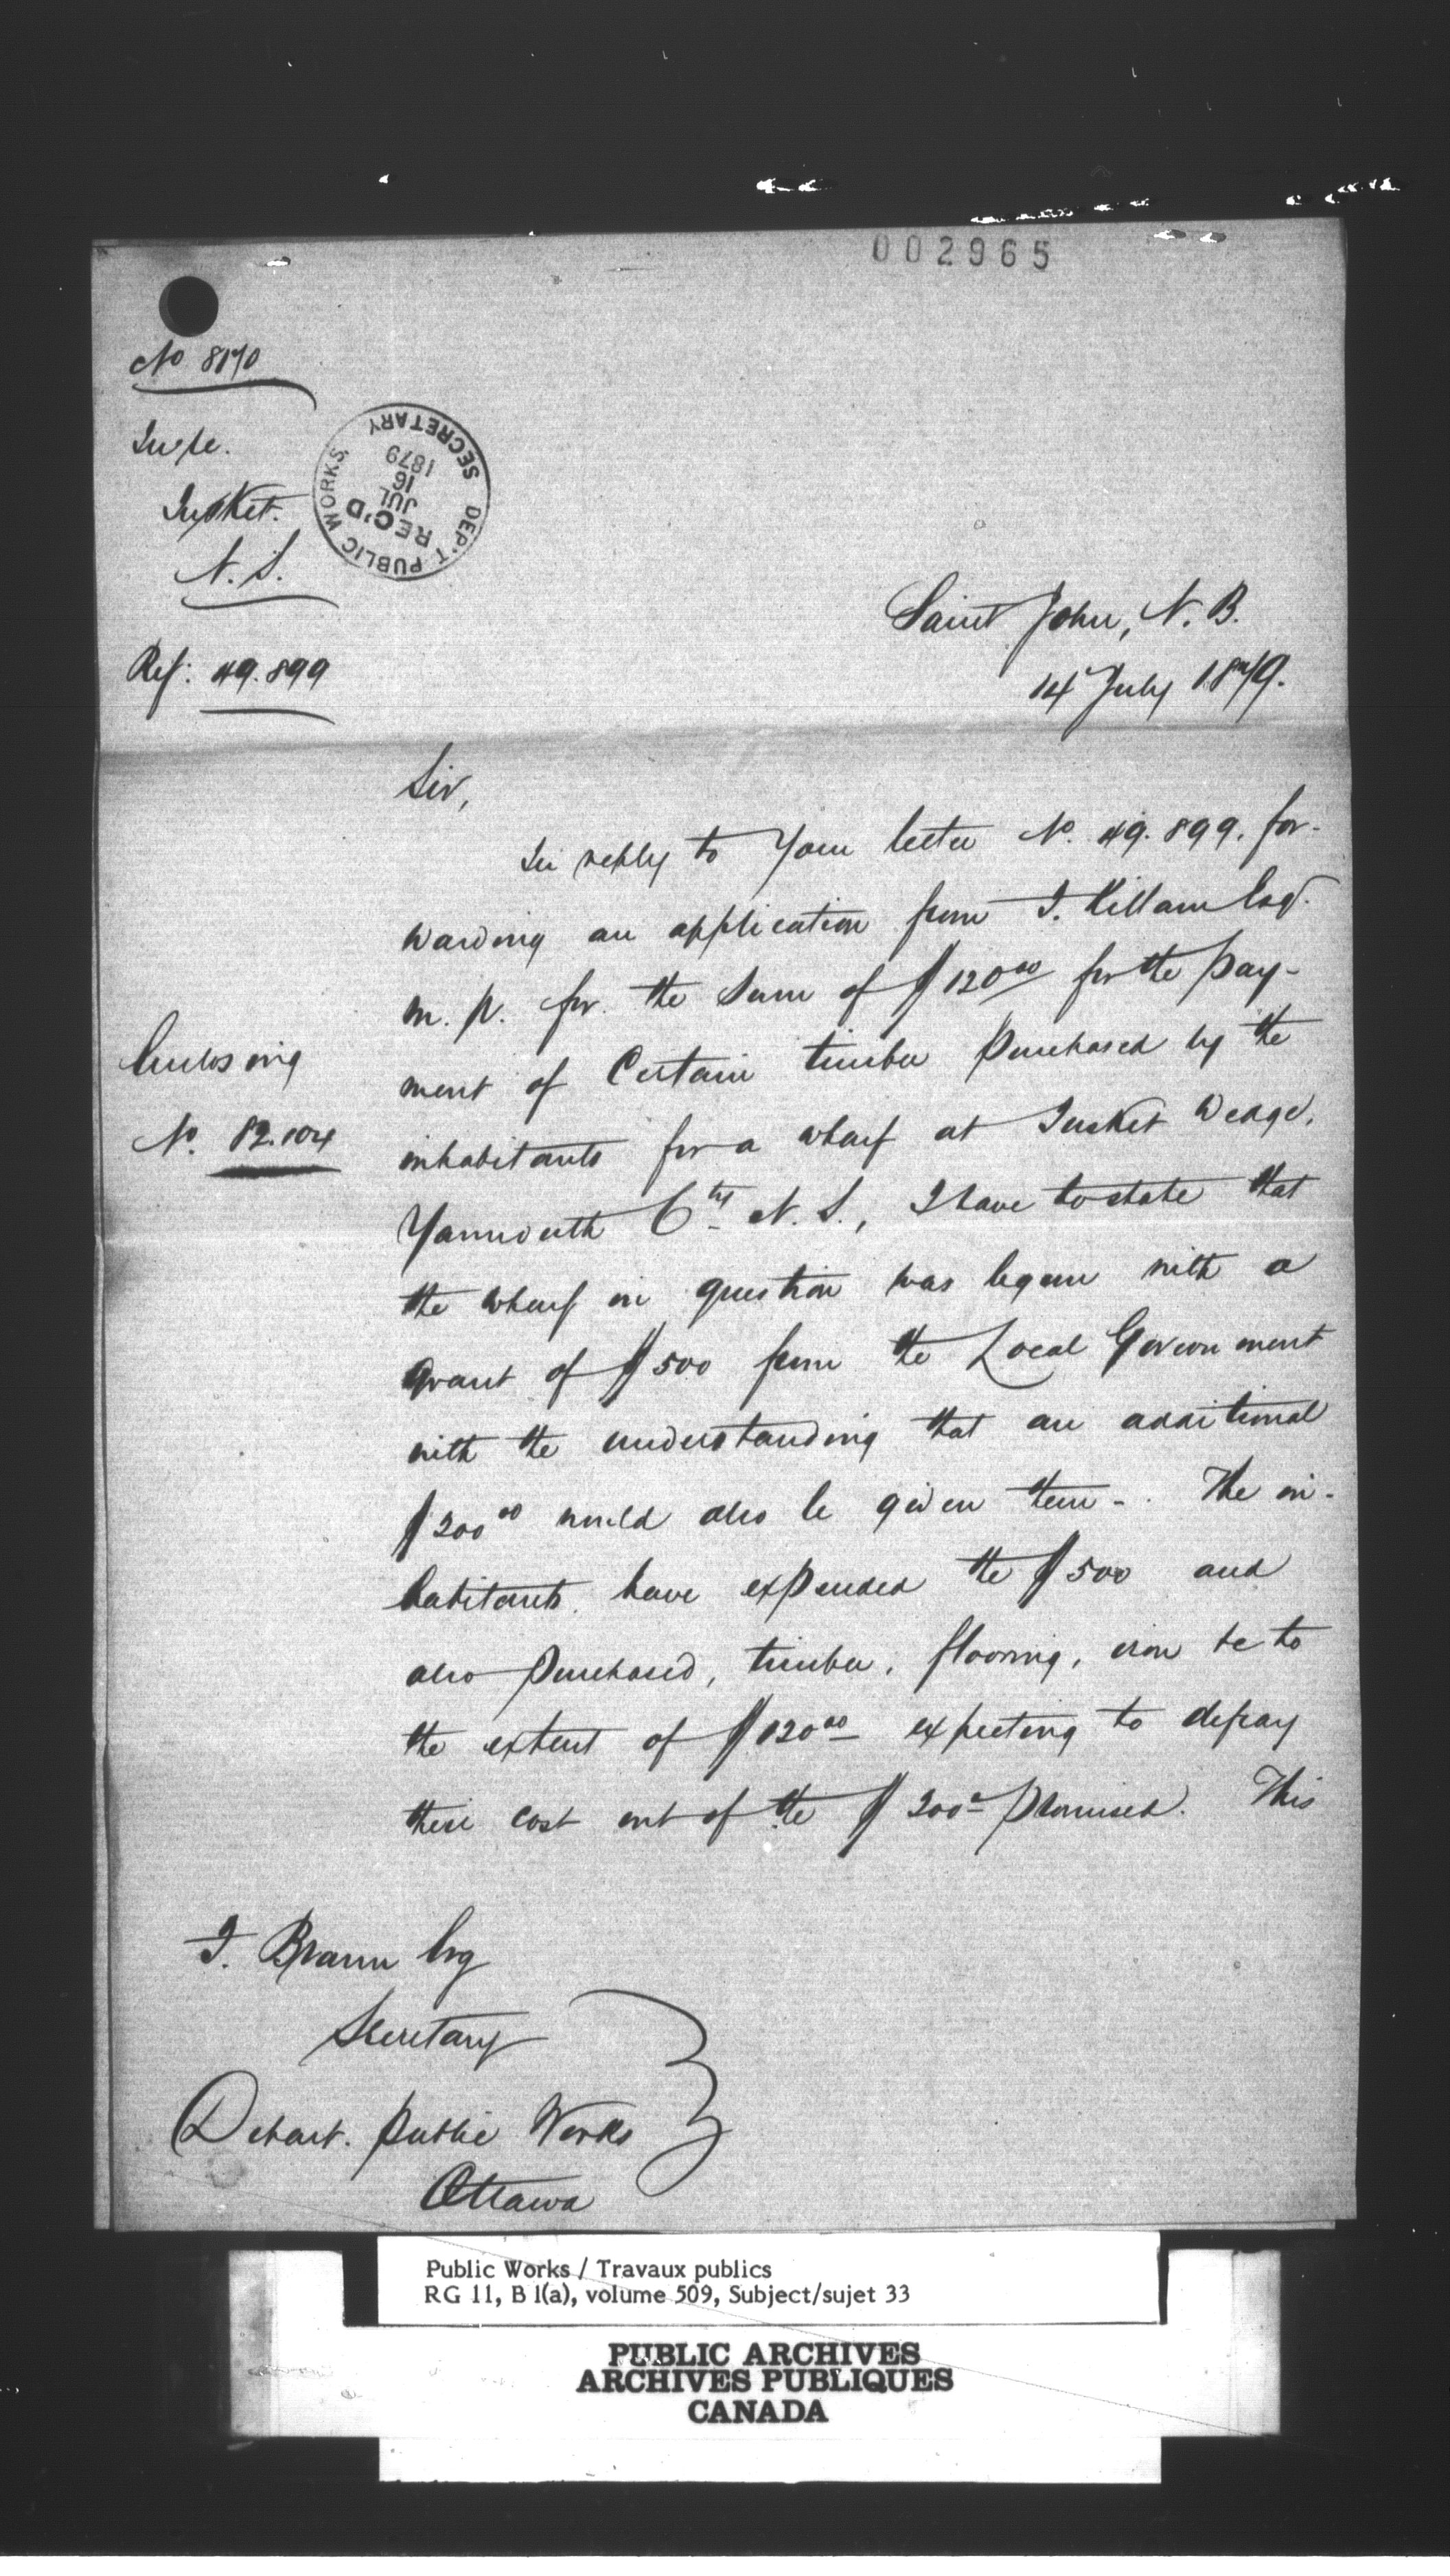 002965
No 8170
Subje.
Tusket.
N. S.
Ref: 49.899
DEP'T PUBLIC WORKS.
REC'D
JUL
16
1879
SECRETARY
Saint John, N. B.
14 July 1879.
Sir,
In reply to Your letter No. 49.899. for-
warding an application from T. Killam Esq.
M. P. for the Sum of $120.00 for the pay-
ment of Certain timber purchased by the
inhabitants for a wharf at Tusket Wedge,
Yarmouth Cty N. S., I have to state that
Enclosing
No. 82.104
the wharf in question was begun with a
grant of $500 from the Local Government
with the understanding that an additional
$200.00 would also be given them. The in-
habitants have expended the $500 and
also purchased, timber, flooring, iron &c to
the extent of $120.00 expecting to defray
their cost out of the $200 promised. This
F. Braun Esq
Secretary
Depart. Public Works
Ottawa
Public Works / Travaux publics
RG 11, B 1(a), volume 509, Subject/sujet 33
PUBLIC ARCHIVES
ARCHIVES PUBLIQUES
CANADA